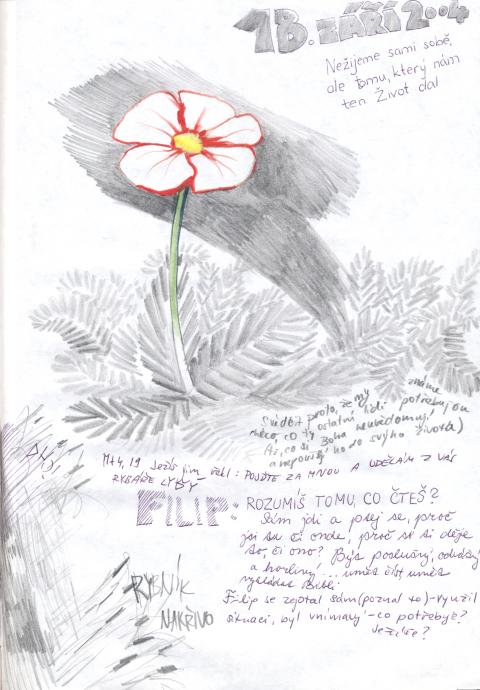 18. září 2004
Nežijeme sami sobě,
ale Tomu, který nám
ten Život dal
Svědčit proto, že my známe
něco, co ty ostatní lidi potřebujou
Až, co si Boha neuvědomují
a nepouští ho do svýho života)
Mt 4,19 Ježíš jim řekl: POJĎTE ZA MNOU A UDĚLÁM Z VÁS
RYBÁŘE LIDÍ
FILIP: ROZUMÍŠ TOMU, CO ČTEŠ?
Sám jdi a ptej se, proč
jsi tu či onde, proč se ti děje
to, či ono? Být poslušný, odvážný
a horlivý!... umět číst, umět
vykládat Bibli
Filip se zeptal sám (poznal to) - využil
situaci, byl vnímavý - co potřebuje?
Ježíše?
RYBNÍK
NAKŘIVO